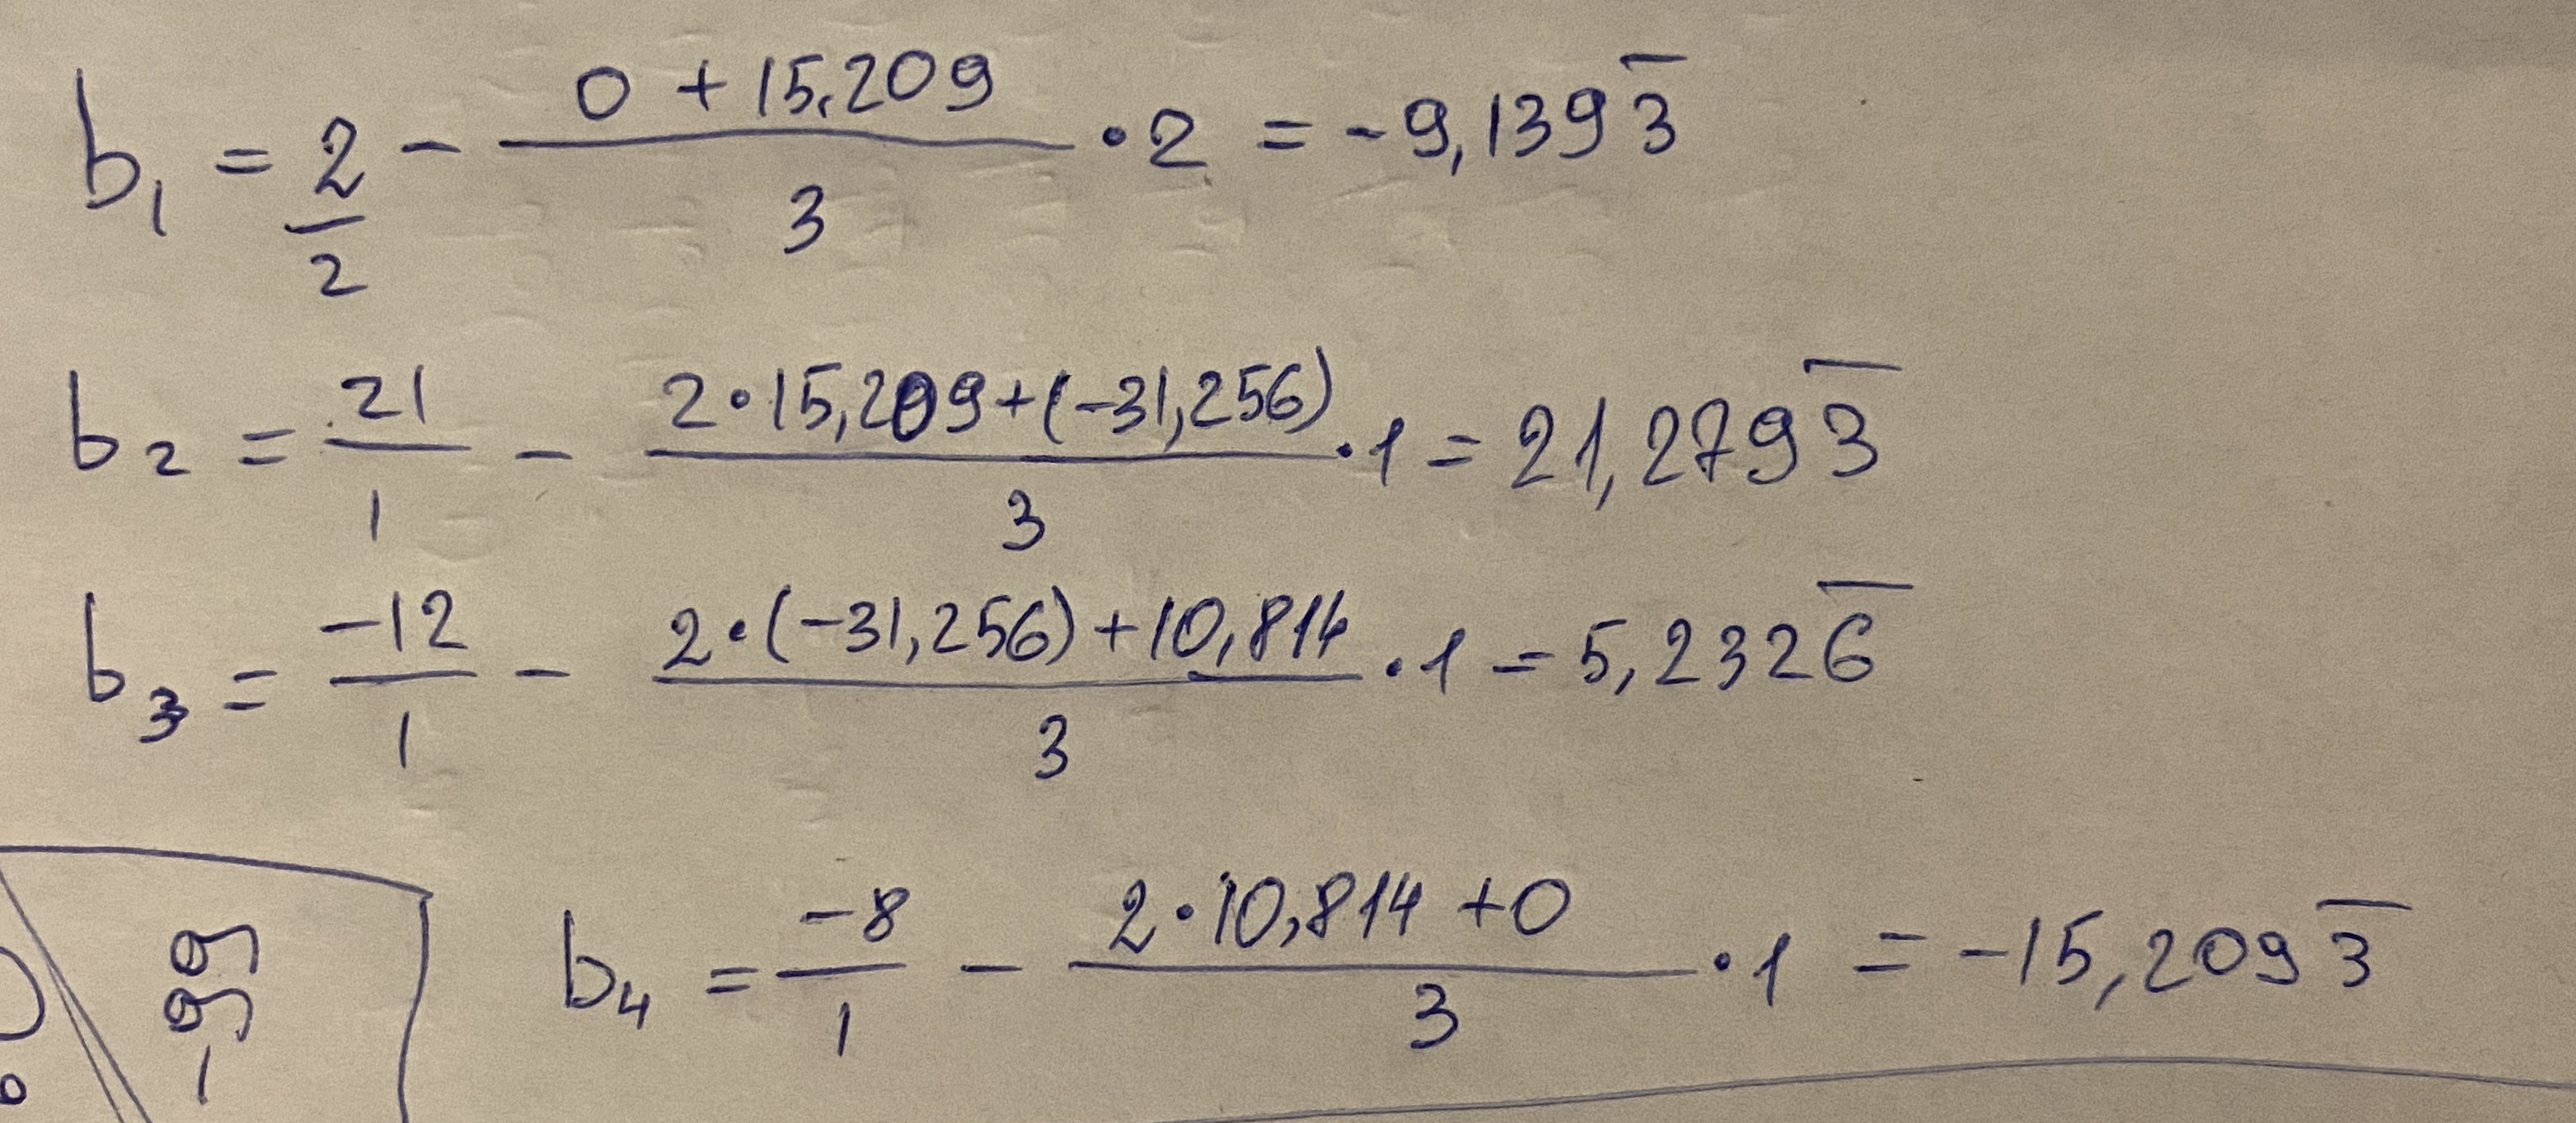 b₁ = 2/2 - (0 + 15,209)/3 · 2 = -9,1393̅
b₂ = 21/1 - (2·15,209+(-31,256))/3 · 1 = 21,2793̅
b₃ = -12/1 - (2·(-31,256)+10,814)/3 · 1 = 5,2326̅
b₄ = -8/1 - (2·10,814+0)/3 · 1 = -15,2093̅